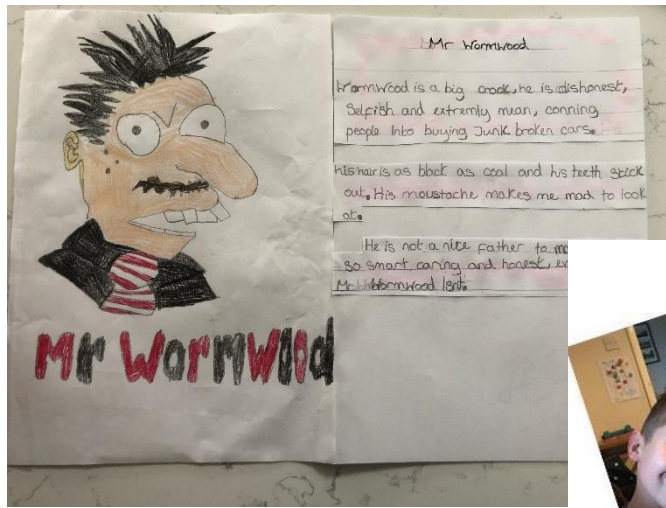 Mr Wormwood
Wormwood is a big crook, he is dishonest,
Selfish and extremly mean, conning
people Into buying Junk broken cars.
his hair is as black as coal and his teeth stick
out. His moustache makes me mad to look
at.
He is not a nice father to
so smart, caring and honest,
Mr Wormwood Isnt.
Mr Wormwood